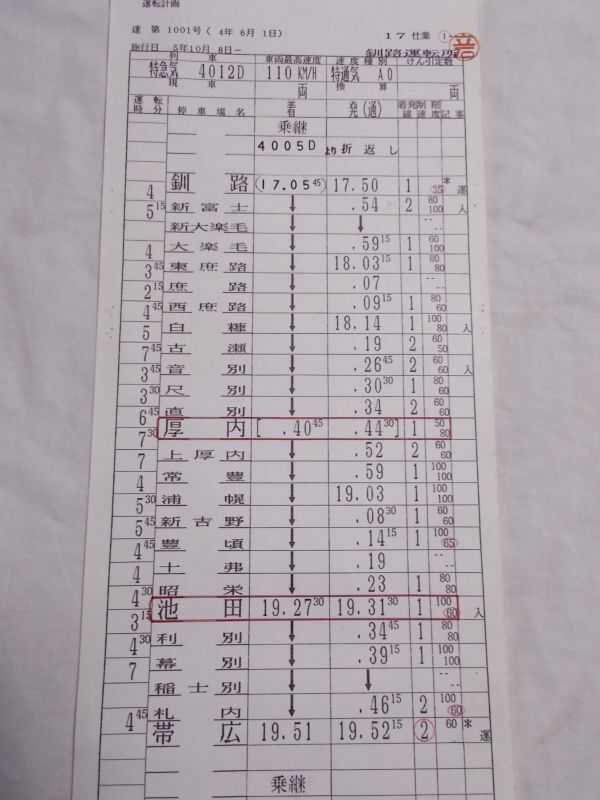 運転計画
達 第 1001号( 4年 6月 1日)
17 仕業 ①
施行日 5年10月 8日−
釧路運転所
列 車 車両最高速度 速度種別 けん引定数
特急気 4012D 110KM/H 特通気 A0
現 車 両 換 算 両
運転時分 停車場名 着 発(通) 着発線 制限速度 記事
乗継
4005D より折返し
釧路 (17.05 45) 17.50 1 35 * 運
4
新富士 ↓ .54 2 80 100 入
5 15
新大楽毛 ↓ ↓ -- --
大楽毛 ↓ .59 15 1 60 100
4
東庶路 ↓ 18.03 15 1 80 80
3 45
庶路 ↓ .07 -- --
2 15
西庶路 ↓ .09 15 1 80 60
4 45
白糠 ↓ 18.14 1 100 80 入
5
古瀬 ↓ .19 2 60 50
7 45
音別 ↓ .26 45 2 60 60 入
3 45
尺別 ↓ .30 30 1 80 80
3 30
直別 ↓ .34 2 60 60
6 45
厚内 [ .40 45 .44 30 ] 1 50 80
7 30
上厚内 ↓ .52 2 60 60
7
常豊 ↓ .59 1 100 100
4
浦幌 ↓ 19.03 1 100 100
5 30
新吉野 ↓ .08 30 1 60 60
5 45
豊頃 ↓ .14 15 1 100 65
4 45
十弗 ↓ .19 -- --
4
昭栄 ↓ .23 1 80 80
4 30
池田 19.27 30 19.31 30 1 100 60 入
3 15
利別 ↓ .34 45 1 80 80
4 30
幕別 ↓ .39 15 1 100 100
7
稲士別 ↓ ↓ -- --
札内 ↓ .46 15 2 100 60
4 45
帯広 19.51 19.52 15 2 60 * 運
乗継